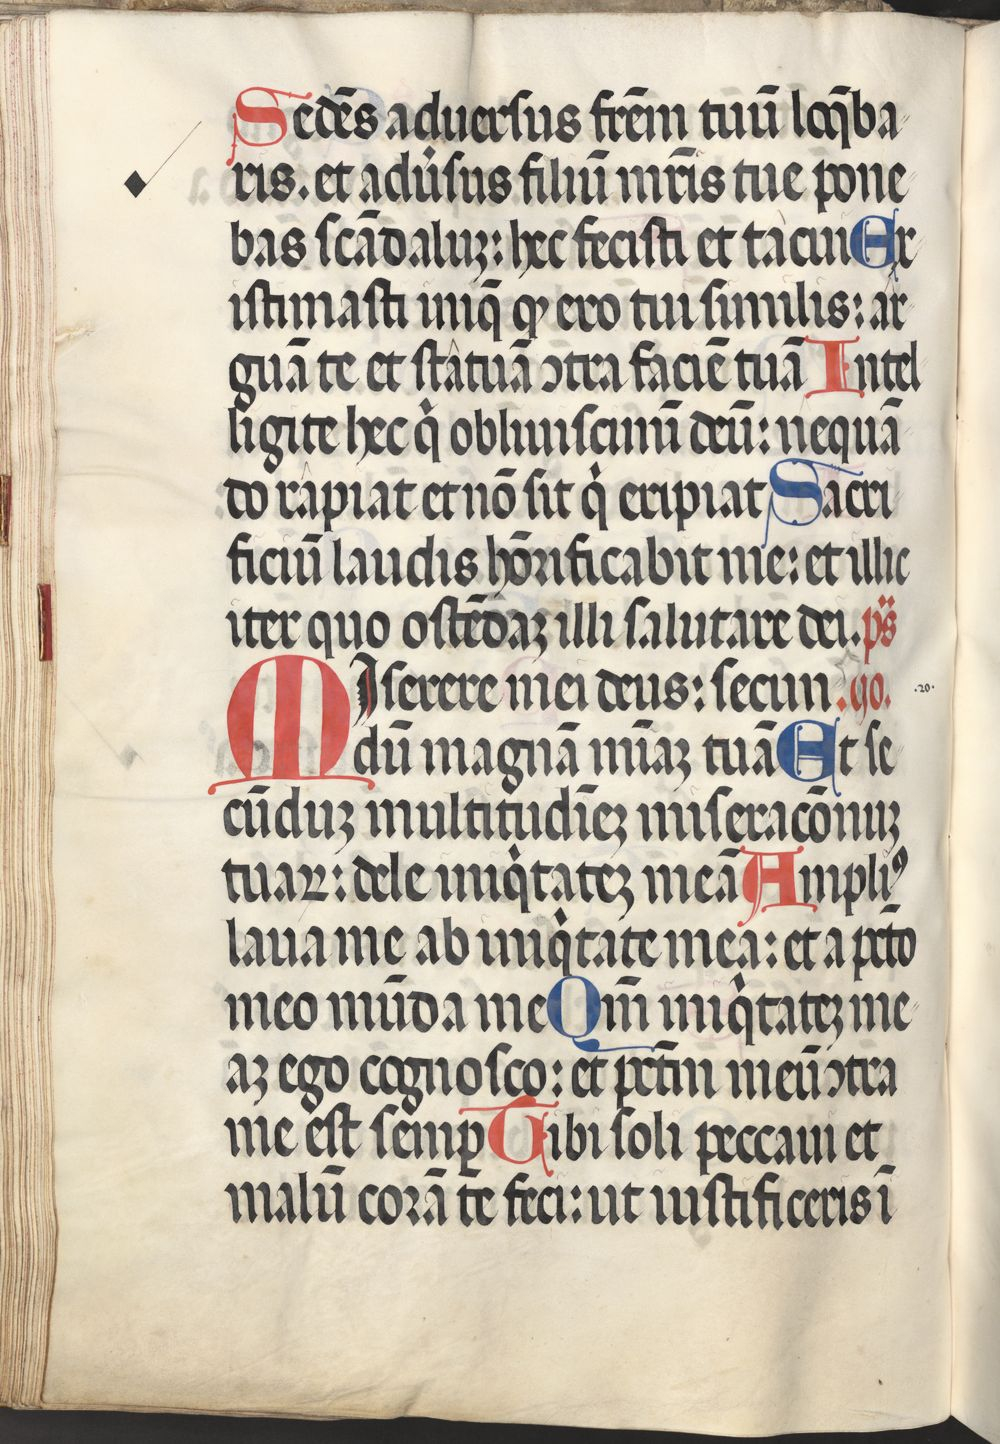 Sedēs aduersus frēm tuū loq̄ba
ris. et adu̾sus filiū mr̄is tue pone
bas scādaluꝫ: hec fecisti et tacui Ex
istimasti iniq̄ ꝙ ero tui similis: ar
guā te et statuā ↄtra faciē tuā Intel
ligite hec qͥ obliuiscimī deū: nequā
do rapiat et nō sit qͥ eripiat Sacri
ficiū laudis hōrificabit me: et illic
iter quo ostēdaꝫ illi salutare dei. ps
Miserere mei deus: secun .yo. .20.
dū magnā mīaꝫ tuā Et se
cūduꝫ multitudīeꝫ miseracōnuꝫ
tuaꝝ: dele iniqͥtateꝫ meā Ampliꝰ
laua me ab iniqͥtate mea: et a pctō
meo mūda me Qm̄ iniqͥtateꝫ me
aꝫ ego cognosco: et pctm̄ meū ↄtra
me est semꝑ Tibi soli peccaui et
malū corā te feci: ut iustificeris ī